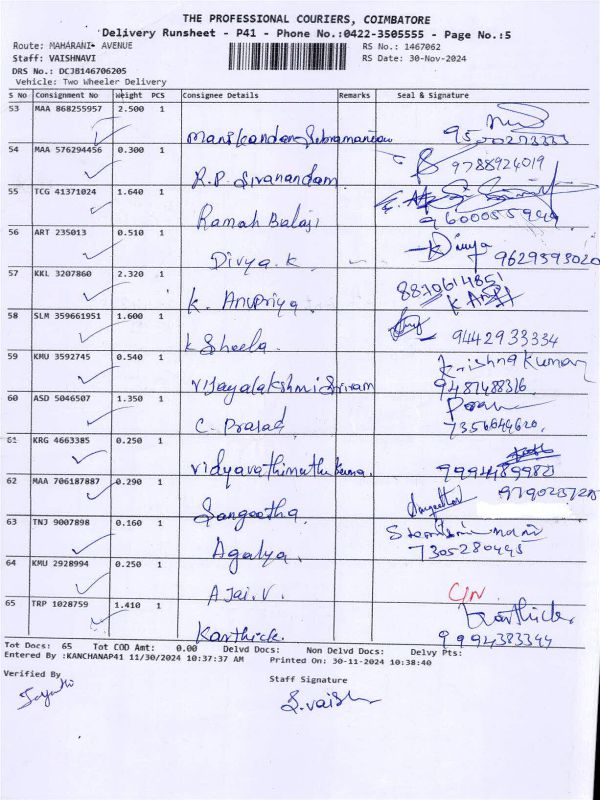 THE PROFESSIONAL COURIERS, COIMBATORE
Delivery Runsheet - P41 - Phone No.:0422-3505555 - Page No.:5
Route: MAHARANI- AVENUE RS No.: 1467062
Staff: VAISHNAVI RS Date: 30-Nov-2024
DRS No.: DCJB146706205
Vehicle: Two Wheeler Delivery
S No Consignment No Weight PCS Consignee Details Remarks Seal & Signature
53 MAA 868255957 2.500 1
Manikandan Subramaniam
54 MAA 576294456 0.300 1 9788924019
R.P. Sivanandam
55 TCG 41371024 1.640 1
Ramah Balaji
56 ART 235013 0.510 1 Divya
Divya.K 9629593020
57 KKL 3207860 2.320 1 8870614851
K. Anupriya
58 SLM 359661951 1.600 1 9442933334
K Sheela
59 KMU 3592745 0.540 1 Krishna Kumar
Vijayalakshmi Sriram 9487488316
60 ASD 5046507 1.350 1
C. Prasad 7356644620
61 KRG 4663385 0.250 1
Vidyavathimuthukumar
62 MAA 706187887 0.290 1 Sangeetha
Sangeetha
63 TNJ 9007898 0.160 1
Agalya 7305280445
64 KMU 2928994 0.250 1
AJai.V. C/N
65 TRP 1028759 1.410 1 Karthick
Karthick. 9994383344
Tot Docs: 65 Tot COD Amt: 0.00 Delvd Docs: Non Delvd Docs: Delvy Pts:
Entered By :KANCHANAP41 11/30/2024 10:37:37 AM Printed On: 30-11-2024 10:38:40
Verified By Staff Signature
S.Vaish